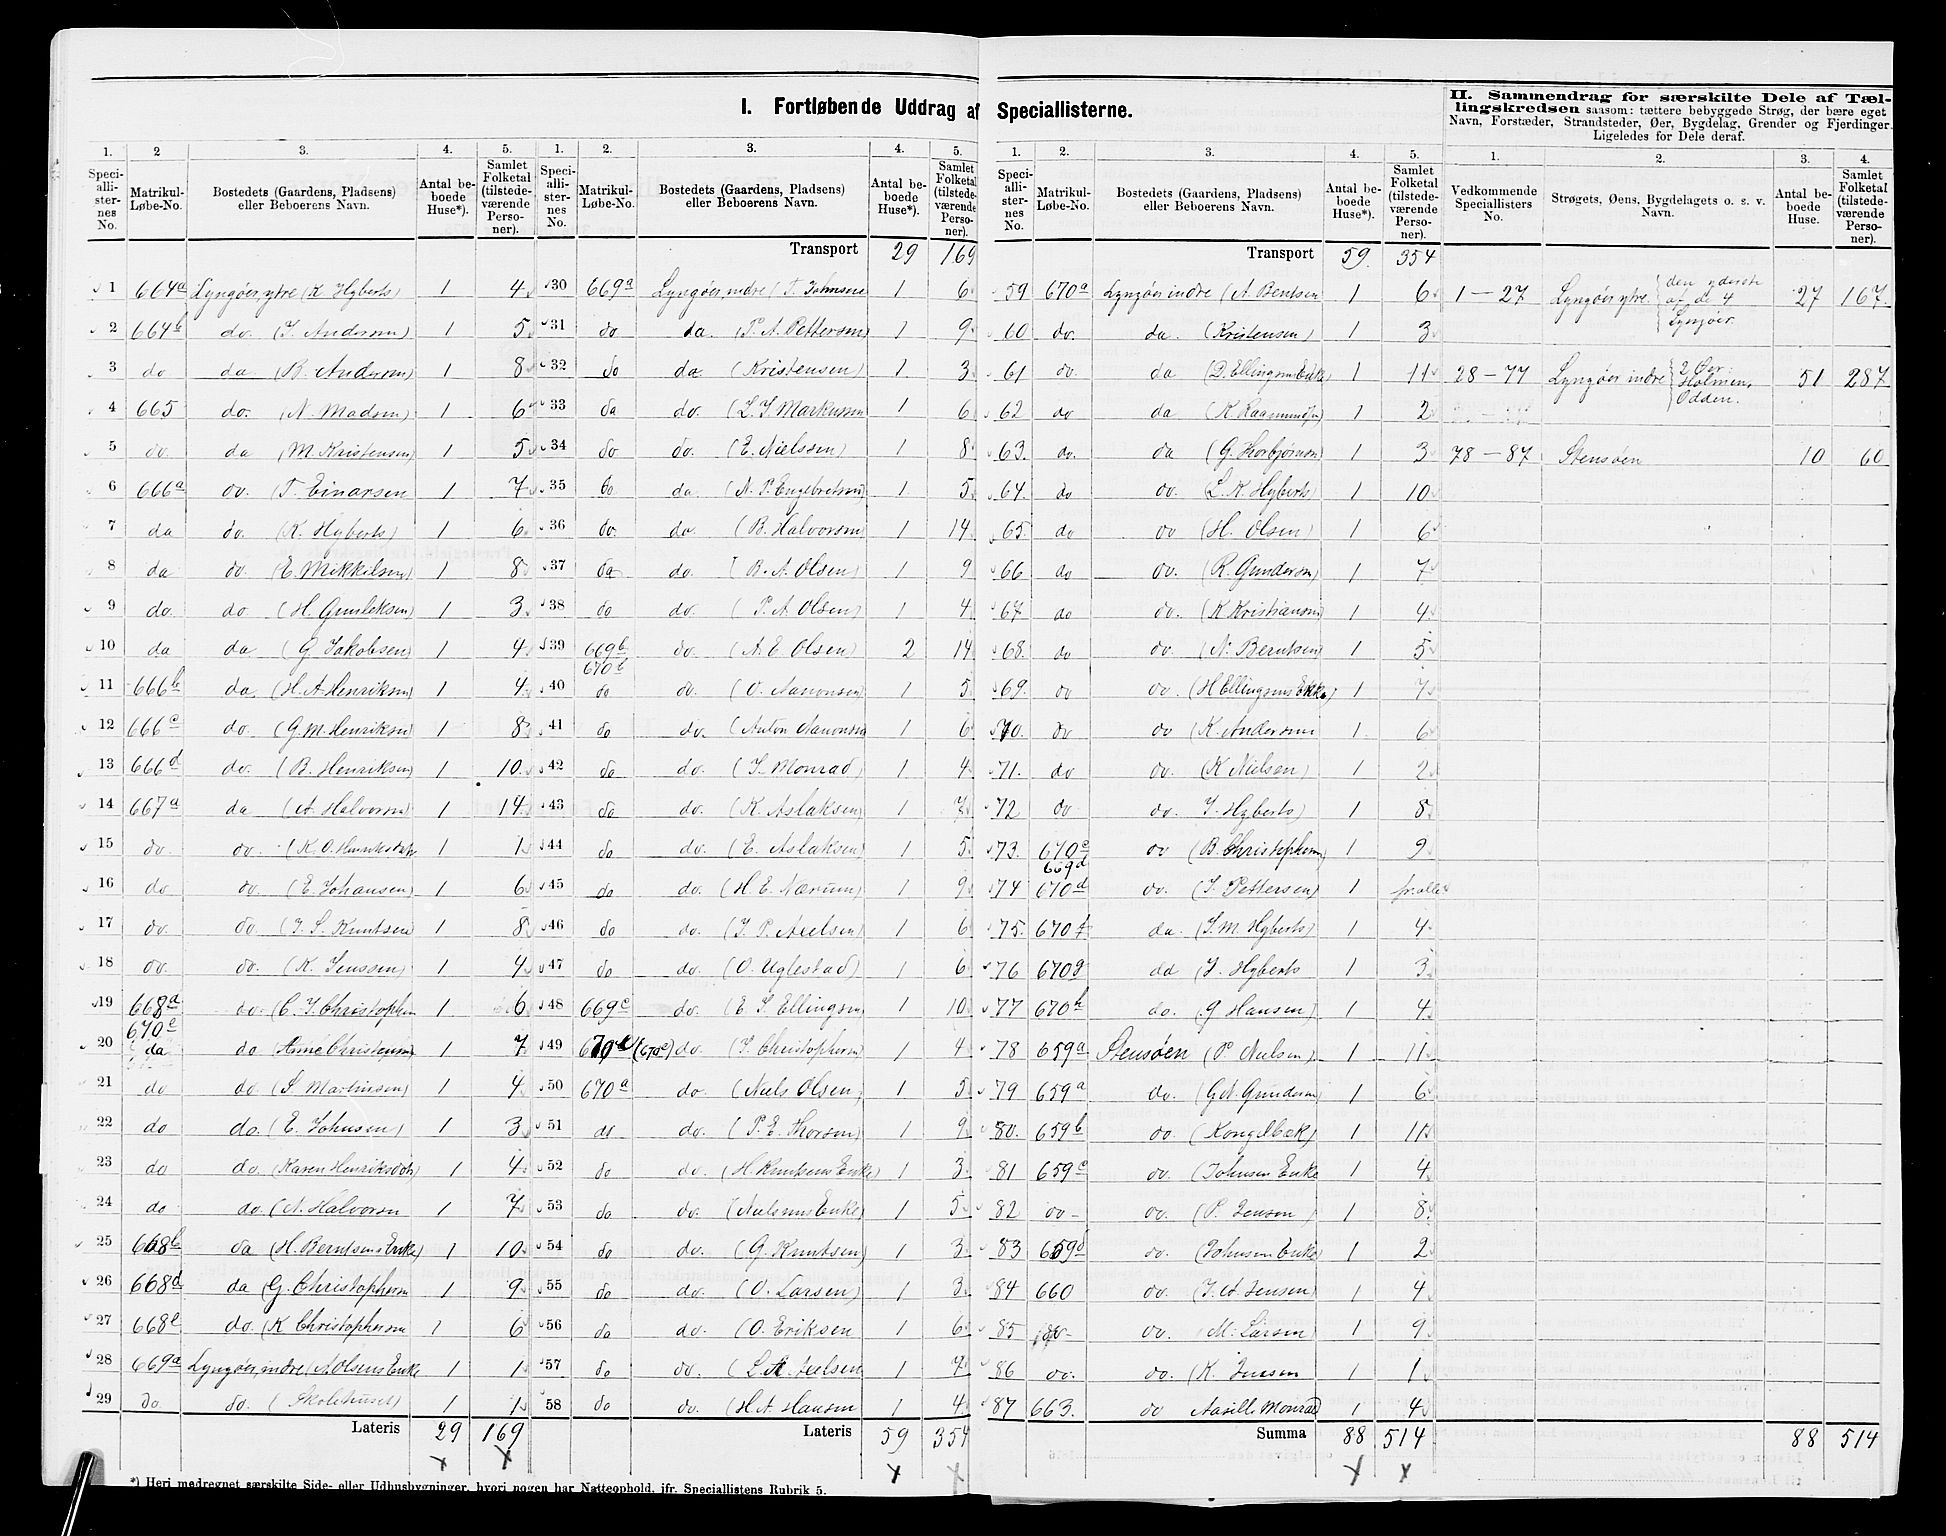 I. Fortløbende Uddrag af Speciallisterne.
II. Sammendrag for særskilte Dele af Tællingskredsen saasom: tættere bebyggede Strøg, der bære eget Navn, Forstæder, Strandsteder, Øer, Bygdelag, Grender og Fjerdinger. Ligeledes for Dele deraf.
1. 2 3. 4. 5.
Speciallisternes No. Matrikul-Løbe-No. Bostedets (Gaardens, Pladsens) eller Beboerens Navn. Antal beboede Huse*). Samlet Folketal (tilstedeværende Personer).
1 664a Lyngøer, ytre (K. Hyberts) 1 4
2 664b do. (T. Andersen) 1 5
3 do da (B. Andersen) 1 8
4 665 do. (N. Madsen) 1 6
5 do. da (M. Kristensen) 1 5
6 666a do. (T. Einarsen 1 7
7 da do. (K. Hyberts) 1 6
8 da do. (E. Mikkelsen) 1 8
9 do. do. (H. Gunleksen) 1 3
10 da da (G. Jakobsen) 1 4
11 666b da (H. A. Henriksen) 1 4
12 666c do. (G. M. Henriksen) 1 8
13 666d do. (B. Henriksen) 1 10
14 667a da (A. Halvorsen) 1 14
15 do. do. (K. O. 1 1
16 do do. (E. Johansen) 1 6
17 do. do. (J. S. Knutsen 1 8
18 do. do. (K. Jenssen) 1 4
19 668a 670e do. (C. J. Christophersen 1 6
20 da do (Anne Christensen) 1 7
21 do do. (S. Martinsen) 1 4
22 do do. (E. Johnsen) 1 3
23 do do. (Karen Henriksdatr) 1 4
24 do do. (N. Halvorsen 1 7
25 668b da (H. Berntsens Enke) 1 10
26 668d da (G. Christophersen 1 9
27 668e do. (K Christophersen 1 6
28 669a Lyngøer, indre (A. Olsens Enke 1 1
29 do. do. (Skolehuset) 1 1
Lateris 29 169
1. 2. 3. 4. 5.
Speciallisternes No. Matrikul-Løbe-No. Bostedets (Gaardens, Pladsens) eller Beboerens Navn. Antal beboede Huse*). Samlet Folketal (tilstedeværende Personer).
Transport 29 169
30 669a Lyngøer, indre (T. Johnsen 1 6
31 do da. (P. A. Pettersen) 1 9
32 do da (Kristensen) 1 3
33 da do. (L. J. Markussen 1 6
34 do do. (E. Nielssen) 1 8
35 do da (N. P. Engebretsen) 1 5
36 do. do. (B. Halvorsen) 1 14
37 da do. (B. A. Olsen) 1 9
38 do do. (P. A. Olsen) 1 4
39 669b 670b do. (A. E. Olsen) 2 14
40 do do. (O. Aanonsen) 1 5
41 do do. (Anton Aanonsen 1 6
42 do do. (J. Monrad) 1 4
43 do do. (K. Aslaksen) 1 7
44 do do. (E. Aslaksen) 1 5
45 do do. (H. E. Nærum) 1 9
46 do do. (J. P. Nielsen) 1 6
47 do do. (O. Uglestad) 1 6
48 669c do. (E. S. Ellingsen 1 10
49 670c (670c) do. (J. Christophersen 1 4
50 670a do. (Niels Olsen) 1 5
51 do. (P. E. Thorsen) 1 9
52 do do. (H. Knutsens Enke) 1 3
53 do do. (Nielsens Enke) 1 5
54 do do. (G. Knutsen) 1 3
55 do do. (O. Larsen) 1 3
56 do do. (O. Eriksen 1 6
57 do do. (L. A. Nielsen 1 7
58 do do. (H. A. Hansen 1 4
Lateris 59 354
*) Heri medregnet særskilte Side- eller Udhusbygninger, hvori nogen har Natteophold, jfr. Speciallistens Rubrik 5.
1. 2. 3. 4. 5.
Speciallisternes No. Matrikul-Løbe-No. Bostedets (Gaardens, Pladsens) eller Beboerens Navn. Antal beboede Huse*). Samlet Folketal (tilstedeværende Personer).
Transport 59. 354
59 670a Lyngøer indre (A. Bentsen 1 6
60 do. da. (Kristensen) 1 3
61 do. da (D. Ellingsens Enke) 1 11
62 do da (K. Raamundsen) 1 2
63. do. da (G. Thorbjørnsen) 1 3
64. do do. L. K. Hyberts) 1 10
65. do do (H. Olsen) 1 6
66 do do. (R. Gundersen) 1 7
67. do do. (K Kristiansen) 1 4
68. do do. (N. Berntsen) 1 5
69. do do. (H Ellingsens Enke) 1 7
70. do do (K. Andersen 1 6
71. do do. (K Nielsen) 1 2
72 do do. J. Hyberts) 1 8
73. 670c 669d do (B. Christophersen) 1 9
74 670d do. (J. Pettersen) 1
75. 670f da. (J. M. Hyberts) 1 4
76 670g da (J. Hyberts 1 3
77 670h do. (G Hansen) 1 4
78 659a Stensøen (P. Nielsen) 1 11
79 659a do. (G. N. Gundersen) 1 6
80. 659b do. (Kongelbæk) 1 11
81 659c do. (Johnsens Enke 1 4
82 do - do. (P. Jensen) 1 8
83 659d do. (Johnsens Enke) 1 2
84 660 do. (J. A. Jensen) 1 4
85 do- do. (M. Larsen) 1 9
86 do. do. (K. Jensen 1 1
87 663. do Aasille Monrad 1 4
Summa 88 514
1. 2. 3. 4.
Vedkommende Speciallisters No. Strøgets, Øens, Bygdelagets o. s. v. Navn. Antal beboede Huse. Samlet Folketal (tilstedeværende Personer).
1 - 27 Lyngöer ytre. { den yderste af de 4 Lyngøer. 27 167
28 - 77 Lyngöer indre { 2 Øer: Holmen, Odden. 51 287
78 - 87 Stensøen 10 60
88 514